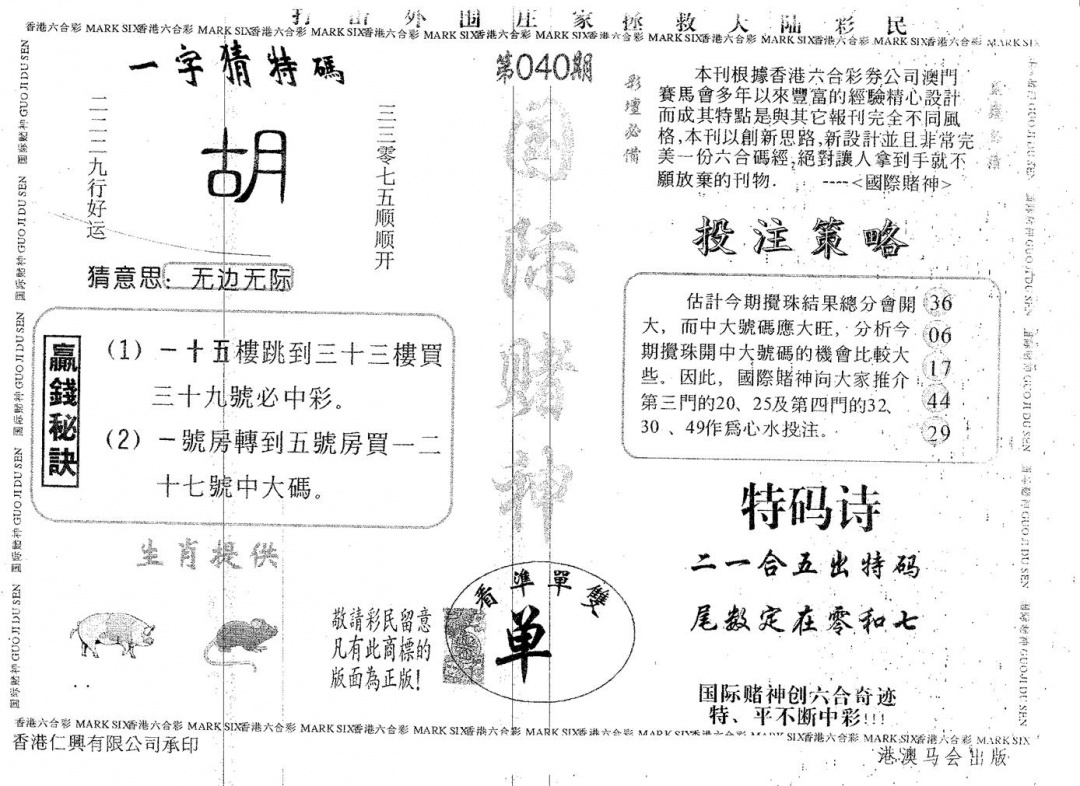 打击外围庄家拯救大陆彩民
香港六合彩 MARK SIX香港六合彩 MARK SIX香港六合彩 MARK SIX香港六合彩 MARK SIX香港六合彩 MARK SIX香港六合彩 MARK SIX香港六合彩 MARK SIX香港六合彩 MARK SIX香港六合彩 MARK SIX
国际赌神 GUO JI DU SEN 国际赌神 GUO JI DU SEN 国际赌神 GUO JI DU SEN 国际赌神 GUO JI DU SEN 国际赌神 GUO JI DU SEN
一字猜特碼
二二二九行好运
胡
三三零七五顺顺开
猜意思：无边无际
贏錢秘訣
(1) 一十五樓跳到三十三樓買
三十九號必中彩。
(2) 一號房轉到五號房買一二
十七號中大碼。
生肖提供
敬請彩民留意
凡有此商標的
版面為正版!
第040期
国际赌神
看準單雙
单
彩壇必備
本刊根據香港六合彩券公司澳門
賽馬會多年以來豐富的經驗精心設計
而成其特點是與其它報刊完全不同風
格,本刊以創新思路,新設計並且非常完
美一份六合碼經,絕對讓人拿到手就不
願放棄的刊物. ----<國際賭神>
投注策略
估計今期攪珠結果總分會開
大，而中大號碼應大旺，分析今
期攪珠開中大號碼的機會比較大
些。因此，國際賭神向大家推介
第三門的20、25及第四門的32、
30 、49作爲心水投注。
36
06
17
44
29
特码诗
二一合五出特码
尾数定在零和七
国际赌神创六合奇迹
特、平不断中彩!!!
香港六合彩 MARK SIX香港六合彩 MARK SIX香港六合彩 MARK SIX香港六合彩 MARK SIX香港六合彩 MARK SIX香港六合彩 MARK SIX香港六合彩 MARK SIX香港六合彩 MARK SIX香港六合彩 MARK SIX
香港仁興有限公司承印
港澳马会出版